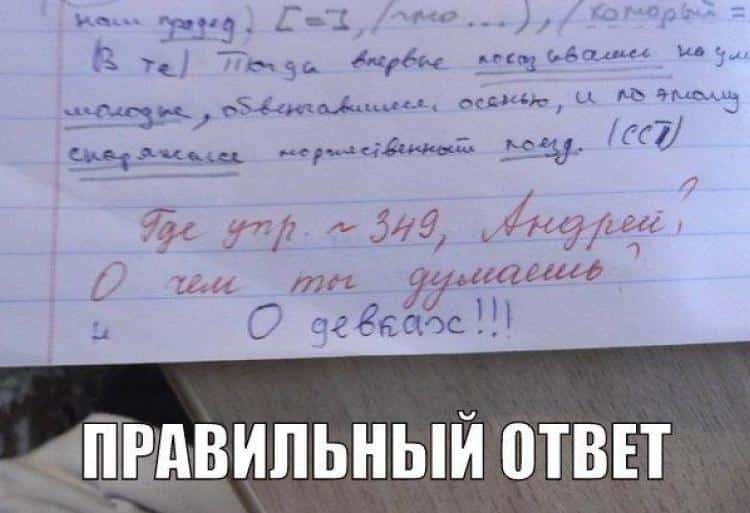 наш прадед) [=], (что ...), (который =
(В те) Тогда впервые показывались на ум
молодые, обвенчавшиеся осенью, и поэтому
снаряжался торжественный поезд. (ССП)
Где упр. ~ 349, Андрей?
О чем ты думаешь?
и О девках!!!
ПРАВИЛЬНЫЙ ОТВЕТ